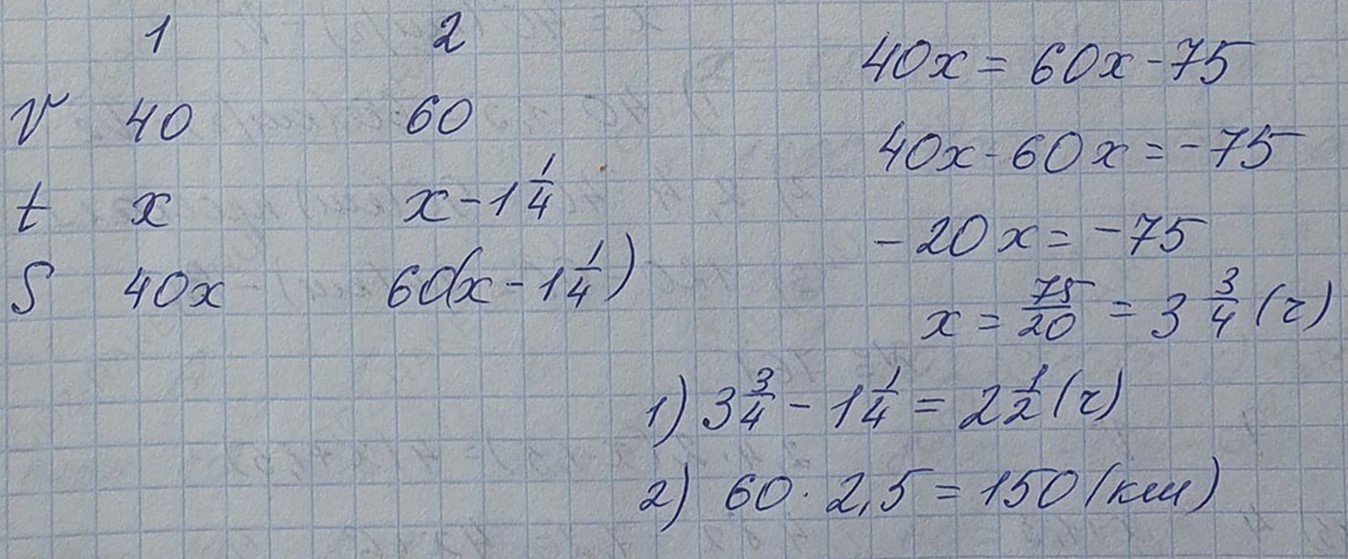 1 2
V 40 60
t x x - 1 1/4
S 40x 60(x - 1 1/4)
40x = 60x - 75
40x - 60x = -75
- 20x = -75
x = 75/20 = 3 3/4 (г)
1) 3 3/4 - 1 1/4 = 2 1/2 (г)
2) 60 · 2,5 = 150 (км)